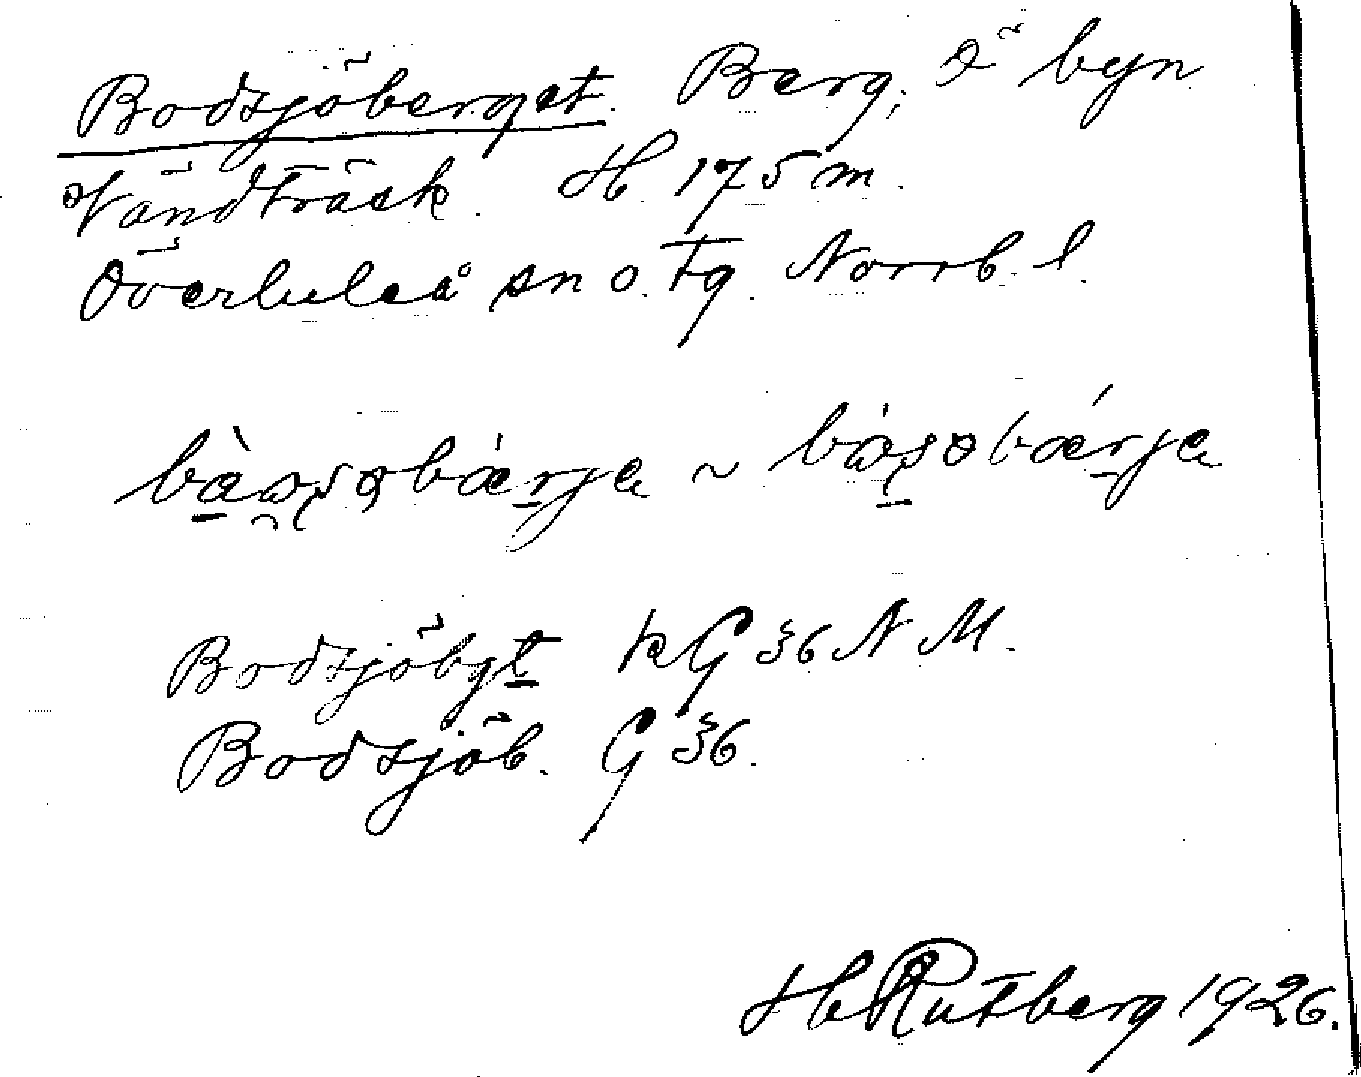 Bodsjöberget. Berg; Ö byn
Vändträsk. H 175 m.
Överluleå sn o. tg. Norrb. l.
~
Bodsjöbgt kG 36 N M.
Bodsjöb. G 36.
H Rutberg 1926.